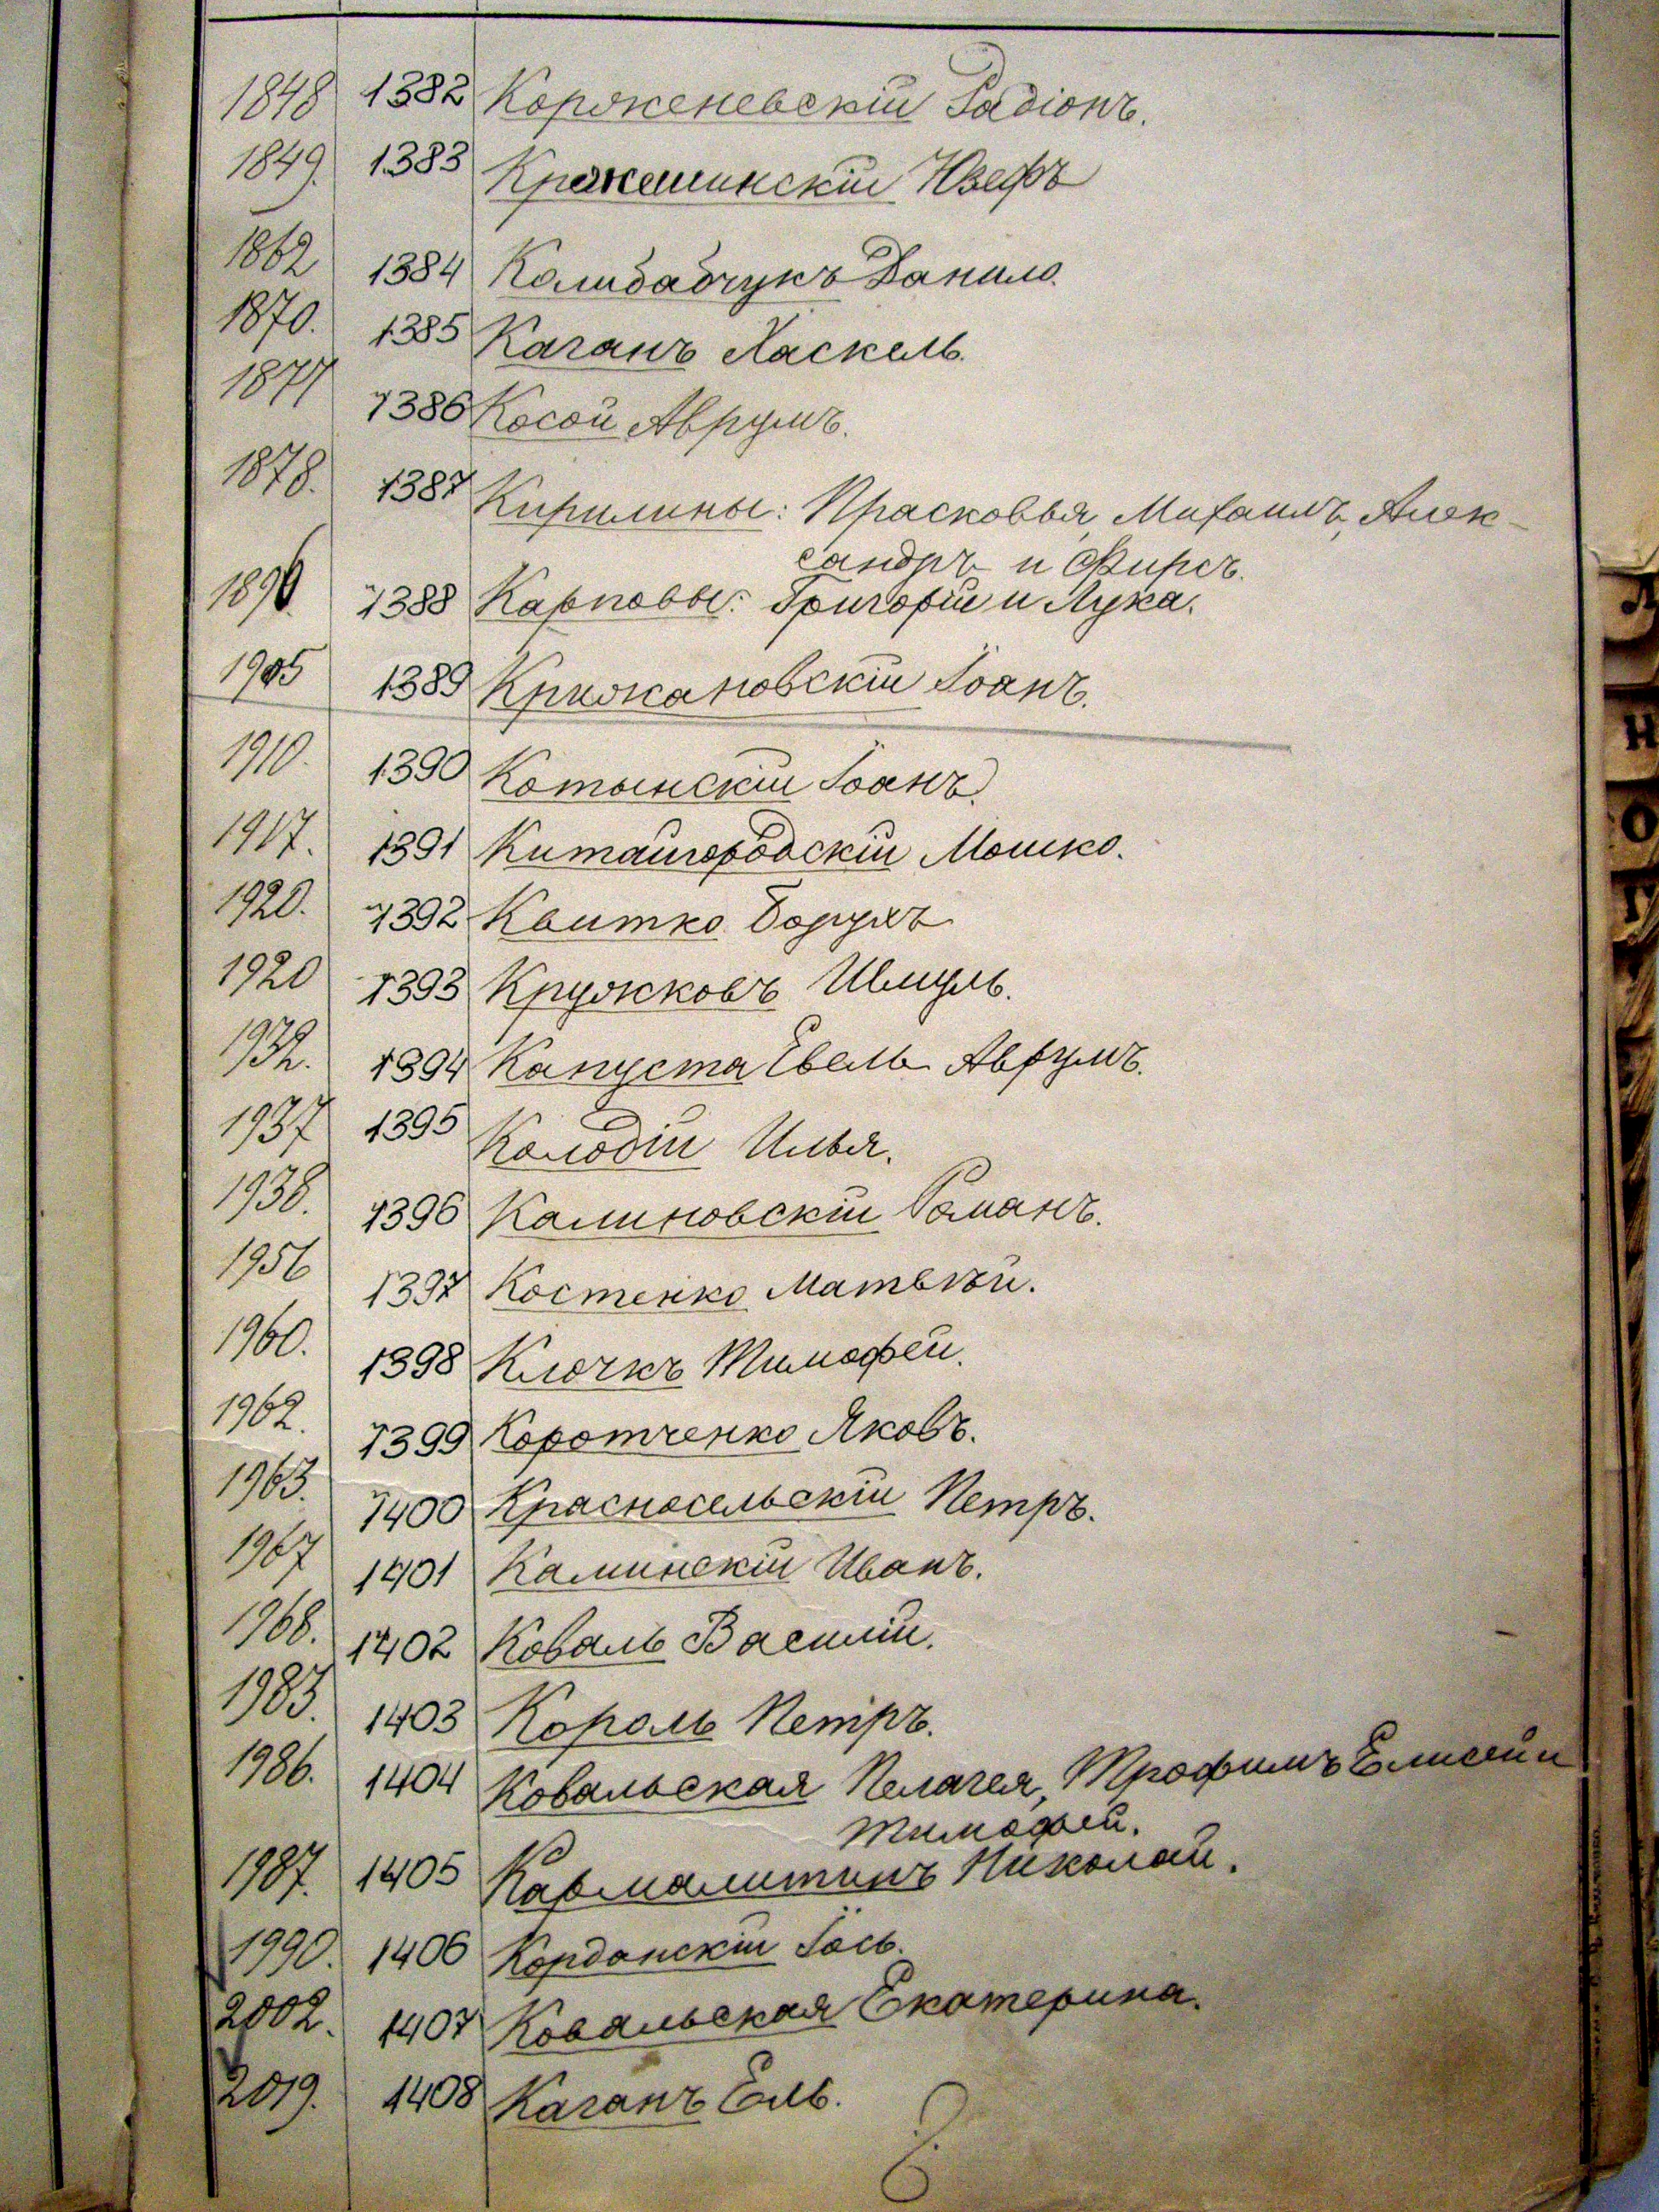 1848 1382 Корженевскій Радіонъ.
1849. 1383 Кржешинскій Юзефъ
1862 1384 Колибабчукъ Данило.
1870. 1385 Каганъ Хаскель.
1877 1386 Косой Аврумъ.
1878. 1387 Кирилины: Прасковья, Михаилъ, Алек-
сандръ и Фирсъ.
1896. 1388 Карповы: Григорій и Лука.
1905 1389 Крижановскій Іоанъ.
1910. 1390 Котынскій Іоанъ.
1917. 1391 Китайгородскій Мошко.
1920. 1392 Квитко Борухъ
1920 1393 Кружковъ Шмуль.
1932. 1394 Капуста Евель Аврумъ.
1937 1395 Колодій Илья.
1938. 1396 Калиновскій Романъ.
1956 1397 Костенко Матвѣй.
1960. 1398 Клочкъ Тимофей.
1962. 1399 Коротченко Яковъ.
1963. 1400 Красносельскій Петръ.
1967 1401 Каминскій Иванъ.
1968. 1402 Коваль Василій.
1983. 1403 Король Петръ.
1986. 1404 Ковальская Пелагея, Трофимъ Елисей и
Тимофей.
1987. 1405 Кармалитинъ Николай.
1990. 1406 Корданскій Іось.
2002. 1407 Ковальская Екатерина.
2019. 1408 Каганъ Ель.
Л
Н
О
П